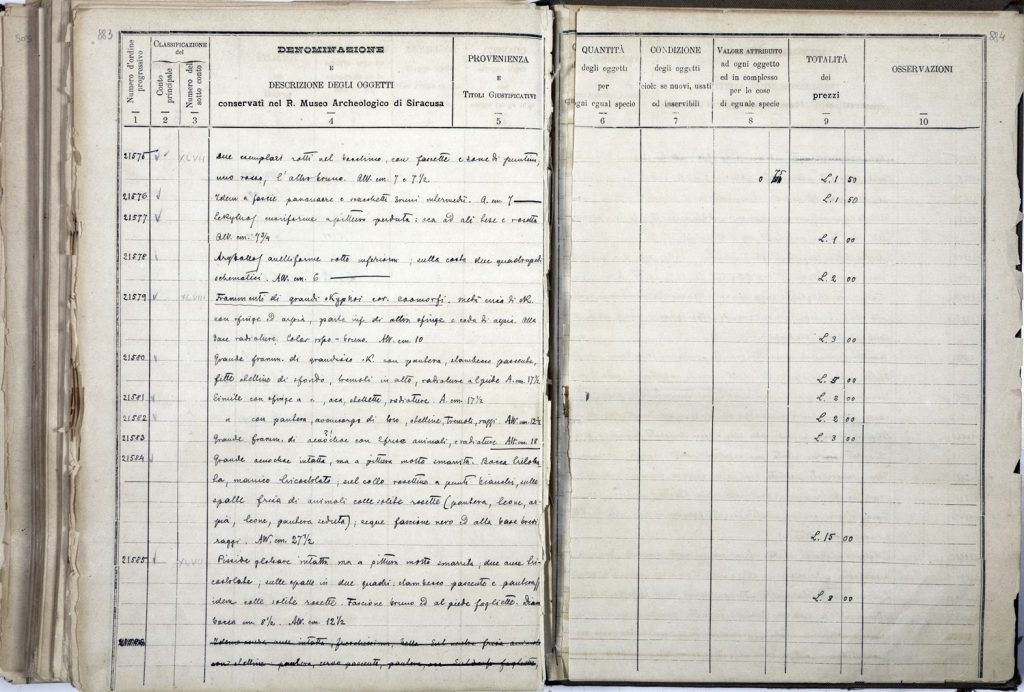 883
884
Numero d'ordine progressivo
CLASSIFICAZIONE del
Conto principale
Numero del sotto conto
DENOMINAZIONE
E
DESCRIZIONE DEGLI OGGETTI
conservati nel R. Museo Archeologico di Siracusa
PROVENIENZA
E
TITOLI GIUSTIFICATIVI
QUANTITÀ
degli oggetti
per
ogni egual specie
CONDIZIONE
degli oggetti
cioè: se nuovi, usati
od inservibili
VALORE ATTRIBUITO
ad ogni oggetto
ed in complesso
per le cose
di eguale specie
TOTALITÀ
dei
prezzi
OSSERVAZIONI
1 2 3 4 5 6 7 8 9 10
21575 XLVII due esemplari rotti nel bocchino, con fascette e zone di puntini,
uno rosso, l'altro bruno. Alt. cm. 7 e 7 1/2 0 75 L. 1 50
21576 Idem a fascie e intermedii. A. cm. 7 L. 1 50
21577 Lekythos a pittura perduta: ad ali tese e rosetta
Alt. cm. 7 3/4 L. 1 00
21578 Aryballos anelliforme rotto inferiorm; sulla costa due quadrupedi
schematici. Alt. cm. 6 L. 2 00
21579 XLVIII Frammenti di grandi skyphoi cor. zoomorfi. metà circa di sk.
con sfinge ed arpia, parte inf. di altra sfinge e coda di arpia. Alla
base radiature. Color rosso-bruno. Alt. cm. 10 L. 3 00
21580 Grande framm. di grandioso sk. con pantera, stambecco pascente,
fitte stelline di sfondo, tremoli in alto, radiature al piede. A. cm. 17 1/2 L. 5 00
21581 Simile con sfinge a s., oca, stellette, radiature. A. cm. 17 1/2 L. 2 00
21582 " con pantera, di toro, stelline, tremoli, raggi. Alt. cm. 12 1/2 L. 2 00
21583 Grande framm. di oenochoe con 2 fregi animali, e radiature. Alt. cm. 18. L. 3 00
21584 Grande oenochoe intatta, ma a pittura molto smarrita. Bocca triloba-
ta, manico tricostolato; sul collo rosettine a punti bianchi, sulle
spalle fregio di animali colle solite rosette (pantera, leone, ar-
pia, leone, pantera seduta); segue fascione nero ed alla base brevi
raggi. Alt. cm. 27 1/2 L. 15 00
21585 XLVII Pisside globare intatta ma a pittura molto smarrita; due anse tri-
costolate; sulle spalle in due quadri: stambecco pascente e pantera,
idem colle solite rosette. Fascione bruno ed al piede fogliette. Diam.
bocca cm. 8 1/2. Alt. cm. 12 1/2 L. 8 00
21586 Idem senza anse intatta, freschissima, bella. Sul ventre fregio
con stelline pantera, pascente, pantera,